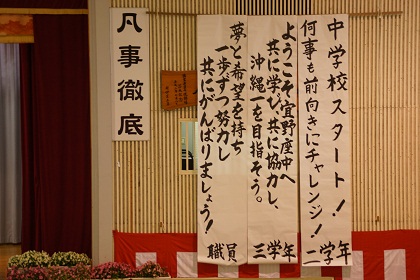 中学校スタート!
何事も前向きにチャレンジ!
二学年
ようこそ宜野座中へ
共に学び、共に協力し、
沖縄一を目指そう。
三学年
夢と希望を持ち
一歩ずつ努力し
共にがんばりましょう!
職員
凡事徹底